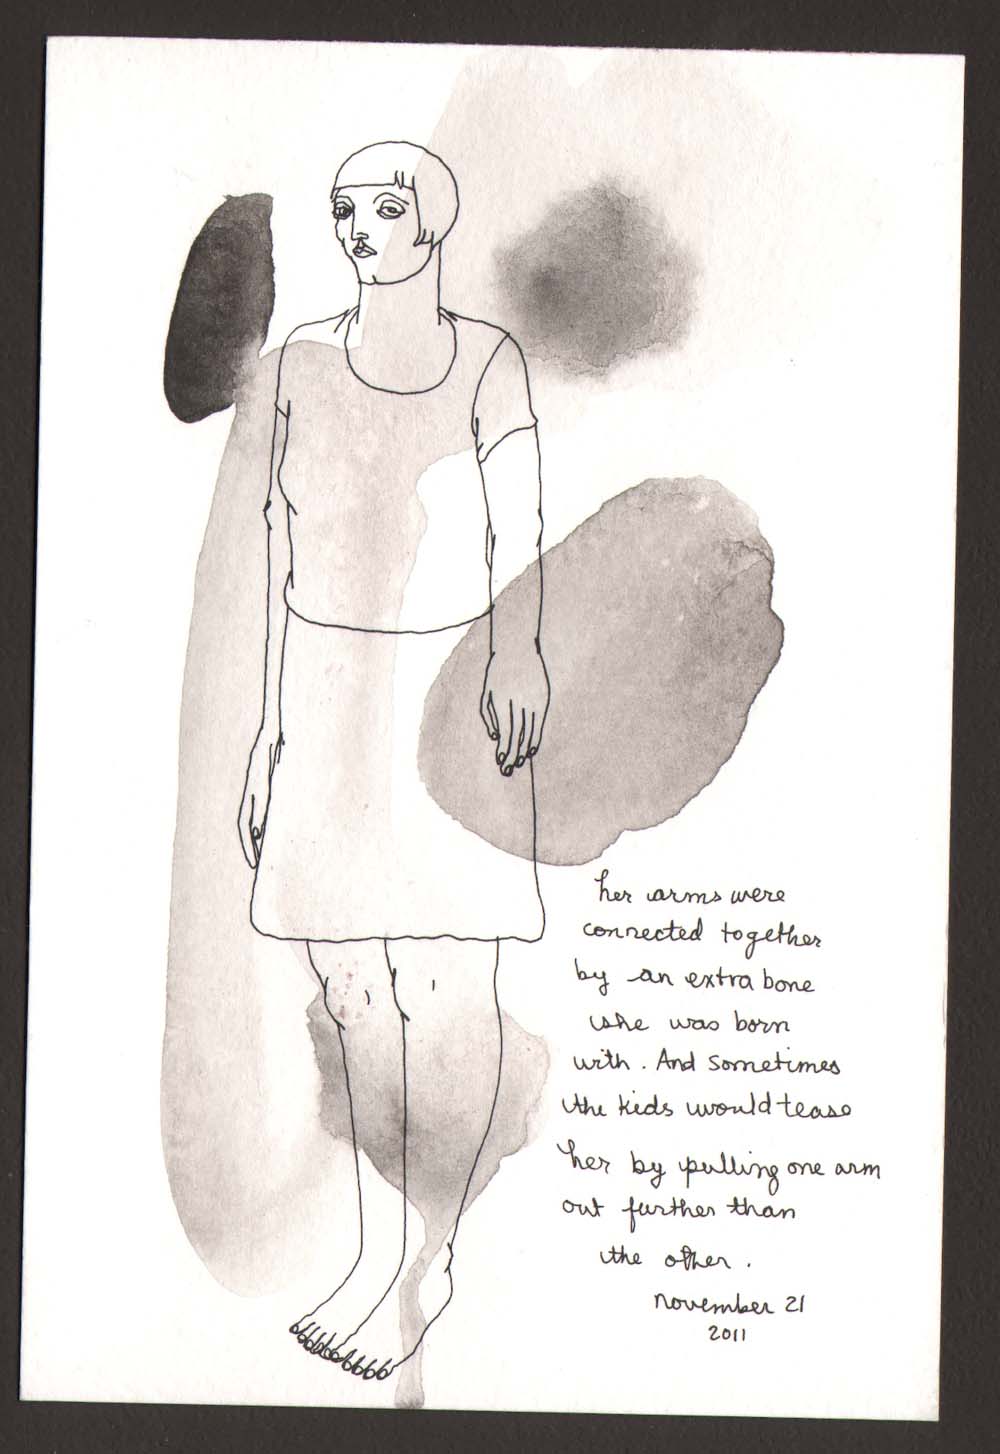 her arms were
connected together
by an extra bone
she was born
with. And sometimes
the kids would tease
her by pulling one arm
out further than
the other.
november 21
2011